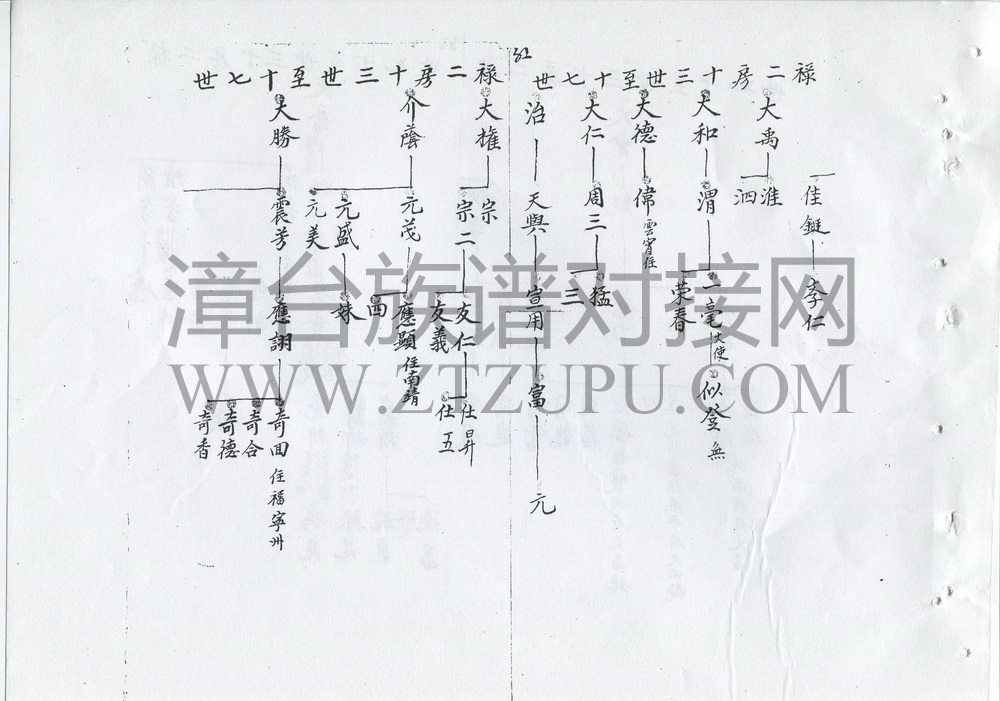 禄二房十三世至十七世
佳鋌 李仁
大禹 淮 泗
大和 渭 一毫 大使 似登 無
榮春
大德 偉 雲霄住
大仁 周三 猛 三
治 天與 宣用 富 元
禄二房十三世至十七世
大權 宗 宗二 友仁 仕昇 仕五
友義
介蔭 元茂 應顯 住南靖
西
元盛 妹
元美
大勝 震芳 應詡 奇回 住福寧州
奇合
奇德
奇香
漳台族谱对接网
WWW.ZTZUPU.COM